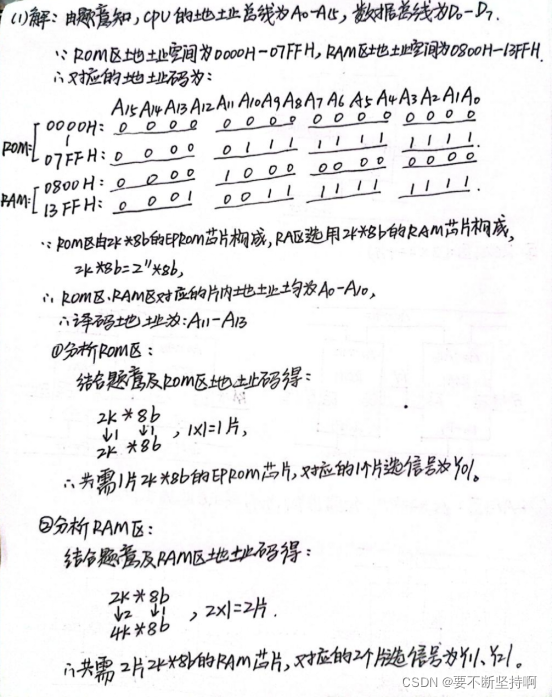 (1)解：由题意知，CPU的地址总线为A0-A15，数据总线为D0-D7.
∵ROM区地址空间为0000H-07FFH，RAM区地址空间为0800H-13FFH.
∴对应的地址码为：
A15 A14 A13 A12 A11 A10 A9 A8 A7 A6 A5 A4 A3 A2 A1 A0
ROM: 0000H: 0 0 0 0 0 0 0 0 0 0 0 0 0 0 0 0
07FFH: 0 0 0 0 0 1 1 1 1 1 1 1 1 1 1 1.
RAM: 0800H: 0 0 0 0 1 0 0 0 0 0 0 0 0 0 0 0
13FFH: 0 0 0 1 0 0 1 1 1 1 1 1 1 1 1 1.
∵ROM区由2k*8b的EPROM芯片构成，RA区选用2k*8b的RAM芯片构成，
2k*8b=2¹¹*8b，
∴ROM区、RAM区对应的片内地址均为A0-A10，
∴译码地址为：A11-A13
①分析ROM区：
结合题意及ROM区地址码得：
2k*8b
↓1 ↓1 ，1×1=1片，
2k*8b
∴共需1片2k*8b的EPROM芯片，对应的1个片选信号为Y0%。
②分析RAM区：
结合题意及RAM区地址码得：
2k*8b
↓2 ↓1 ，2×1=2片.
4k*8b
∴共需2片2k*8b的RAM芯片，对应的2个片选信号为Y1%、Y2%。
CSDN @要不断坚持啊